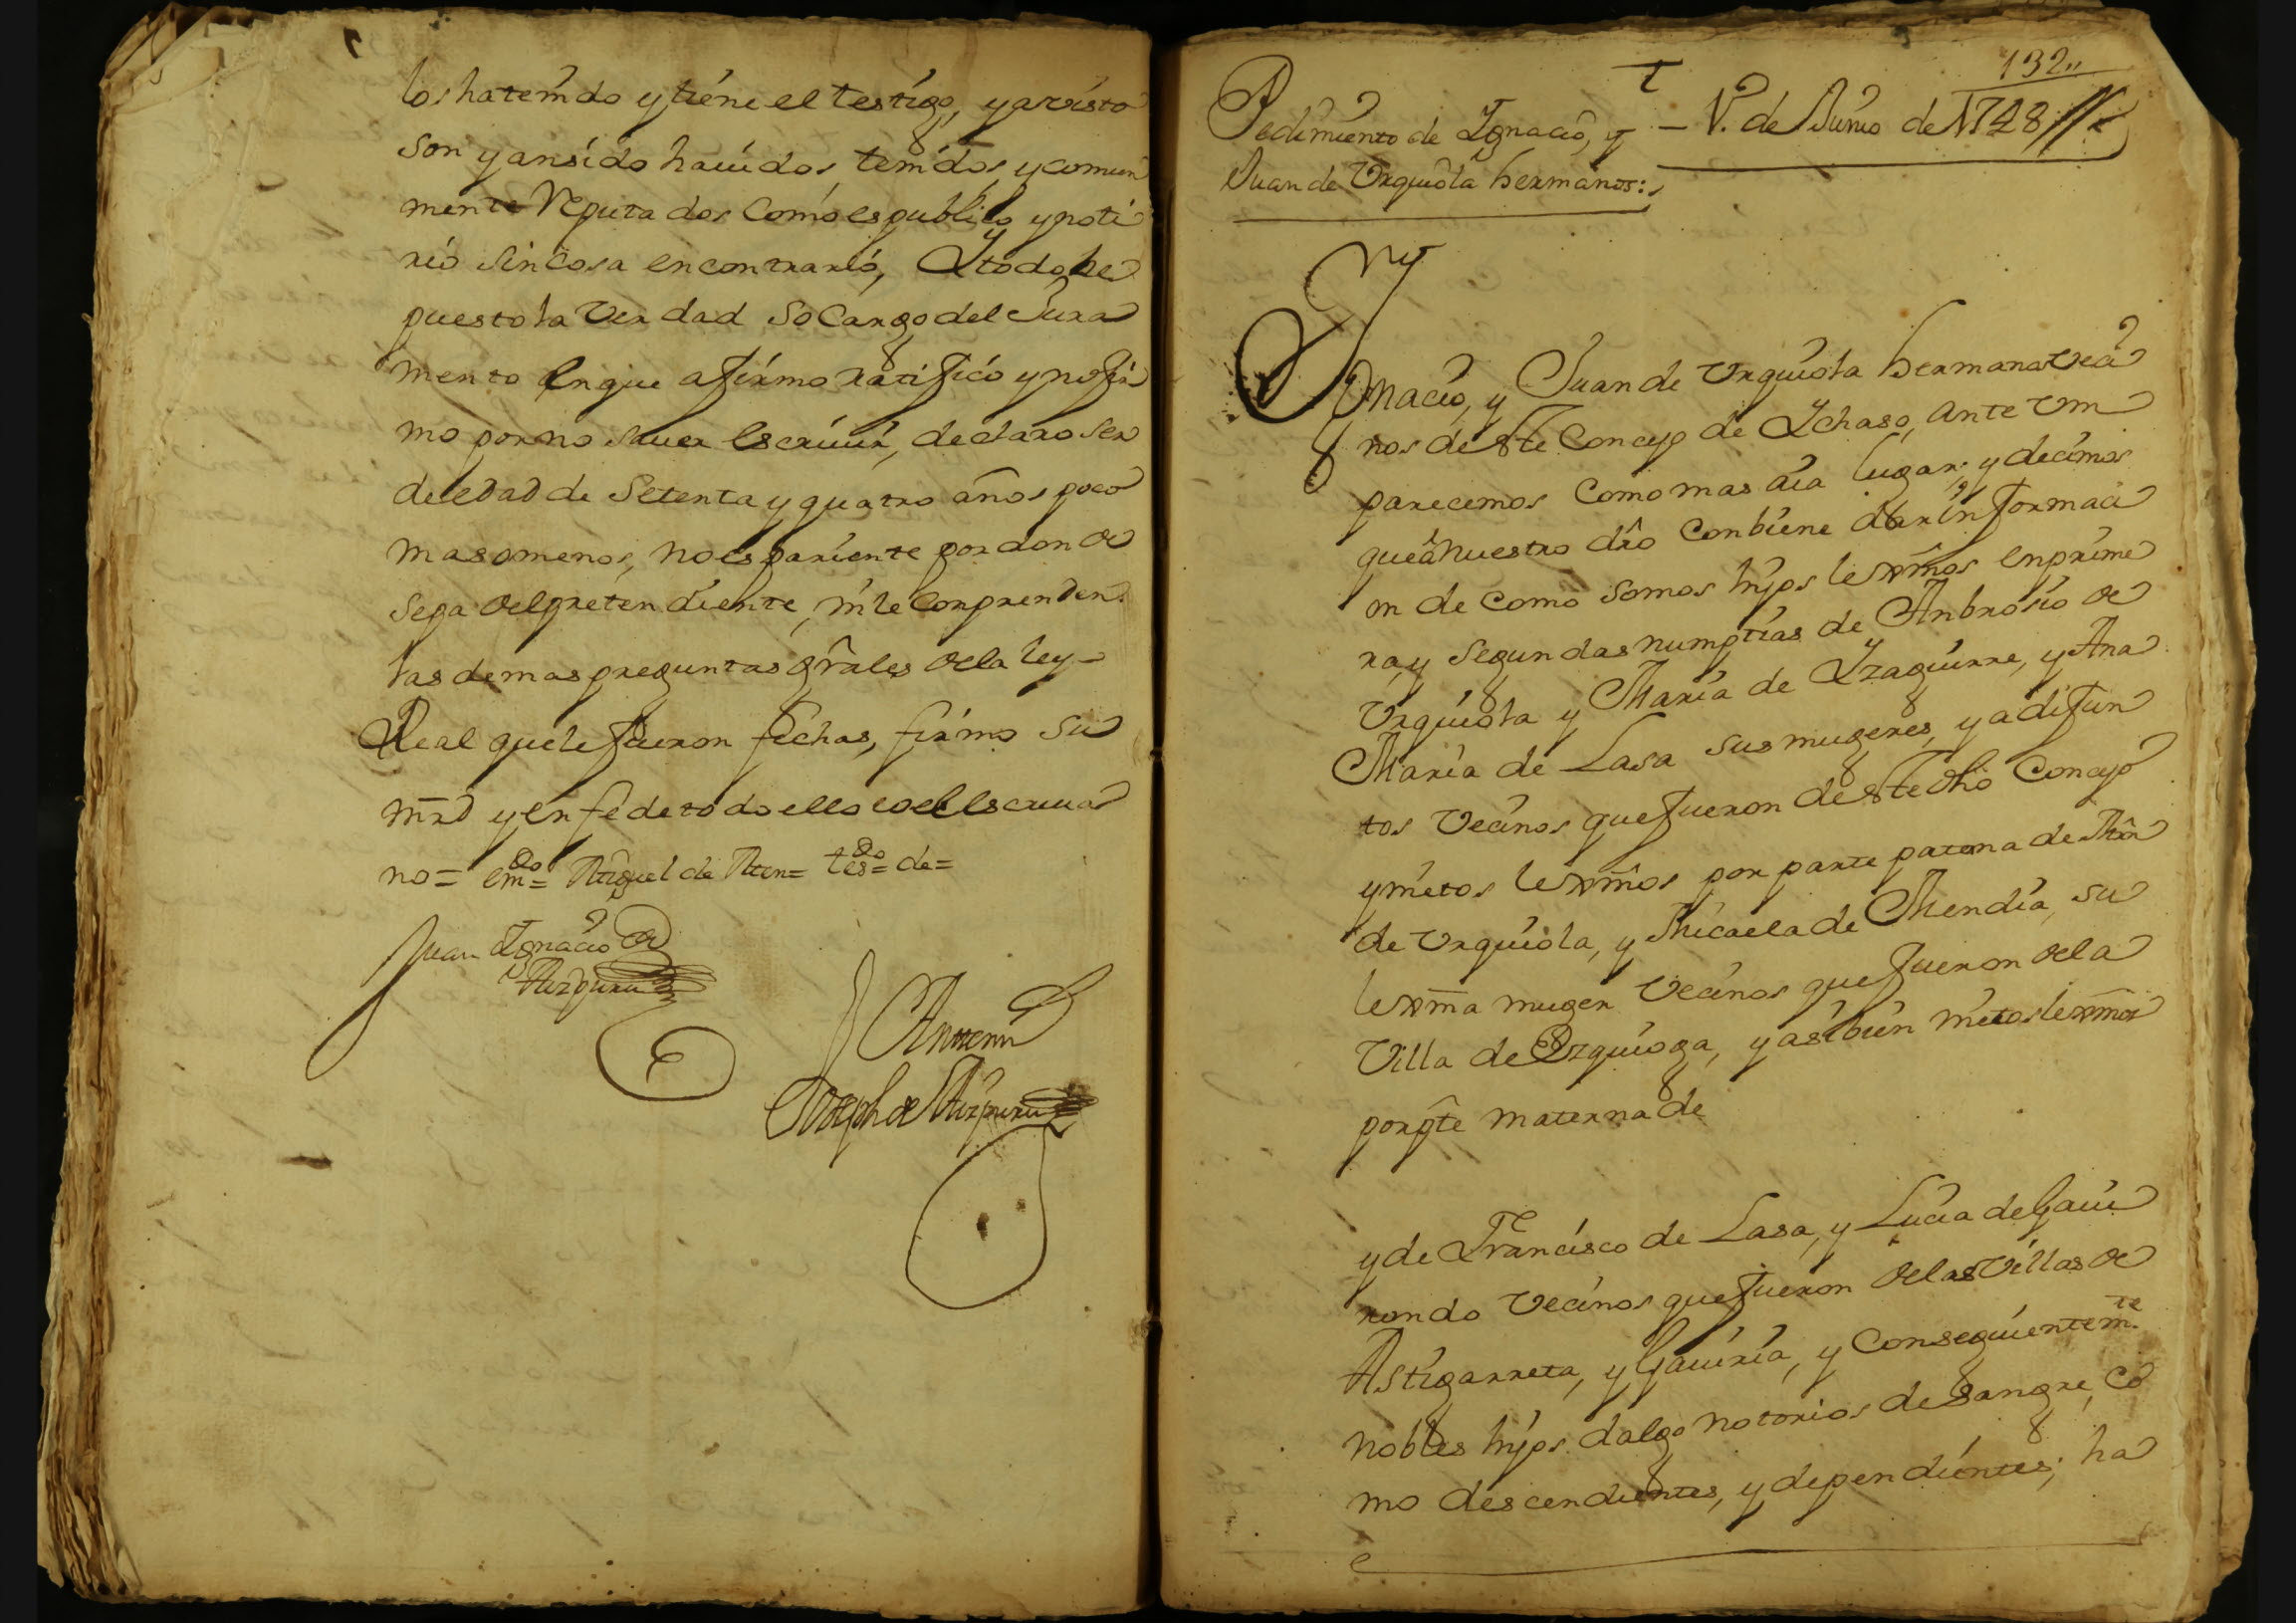 los ha tenido y tiene el testigo, y a visto
son y an sido hauidos, tenidos, y comun
mente Reputados como es publico y noto
rio sin cosa en contrario, Y todo, he
puesto la Verdad so Cargo del Jura
mento en que afirmo ratifico y no fir
mo por no sauer escriuir, declaro ser
de edad de Setenta y quatro años poco
mas o menos, no es pariente por donde
sepa del pretendiente, ni le Comprenden
las demas preguntas gr̃ales de la ley
Real que le fueron fechas, firmo Su
mrd y en fe de todo ello Yo el Escriua
no = emdo = Miguel de = tesdo = de =
Juan Ignacio de
Aizpuru
Antemi
Joseph de Aizpuru
132
Pedimiento de Ignacio, y
Juan de Urquiola hermanos:
1 de Junio de 1728
Ygnacio, y Juan de Urquiola hermanos Veci
nos de este Concejo de Ychaso, ante Vm
parecemos como mas aia lugar, y decimos
que â nuestro dr̃o Conbiene dar informaci
on de como somos hijos lexmos en prime
ra, y segundas numptias de Anbrosio de
Urquiola y Maria de Yzaguirre, y Ana
Maria de Lasa sus mugeres, ya difun
tos Vecinos que fueron de este dho Concejo
y nietos lexmos por parte paterna de Mñ
de Urquiola, y Micaela de Mendia, su
lexma muger Vecinos que fueron de la
Villa de Ezquioga, y asi bien nietos lexmos
por pte materna de
y de Francisco de Lasa, y Lucia de Gaui
rondo Vecinos que fueron de las Villas de
Astigarreta, y Gauiria, y Conseguientemte
nobles hijos dalgo notorios de Sangre, Co
mo descendientes, y dependientes; ha